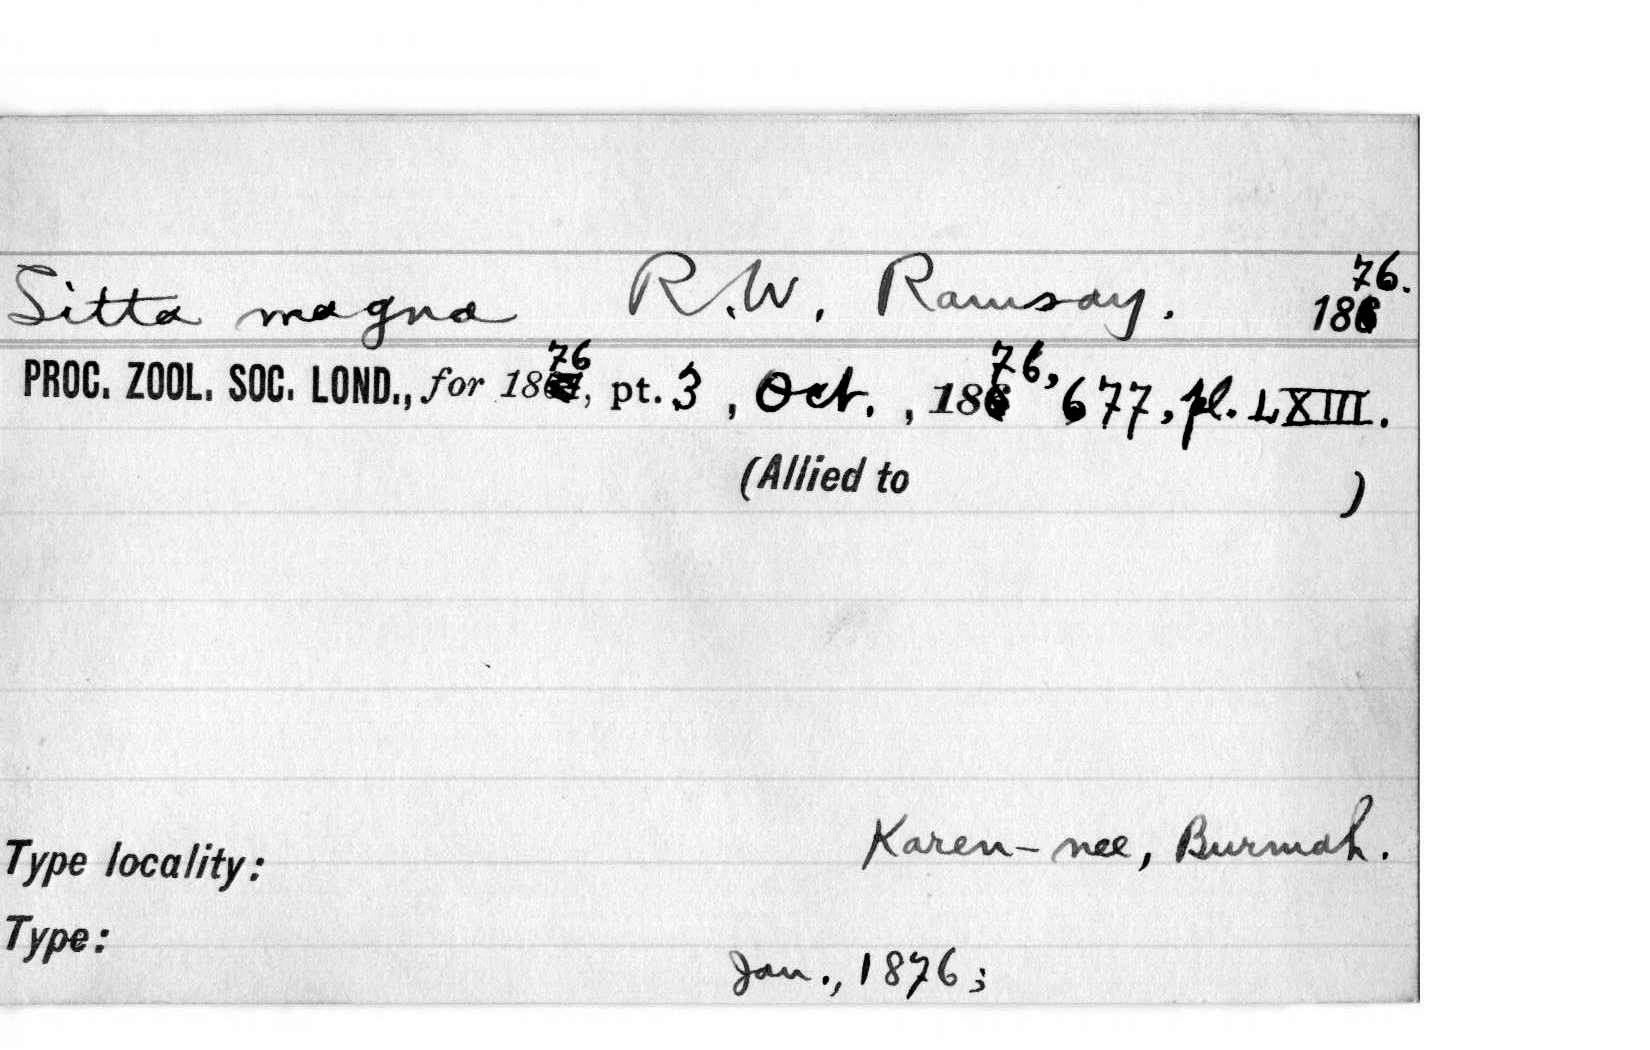 Sitta magna R.W. Ramsay. 1876.
PROC. ZOOL. SOC. LOND., for 1876, pt. 3, Oct., 1876, 677, pl. LXIII.
(Allied to )
Type locality: Karen-nee, Burmah.
Type:
Jan., 1876;